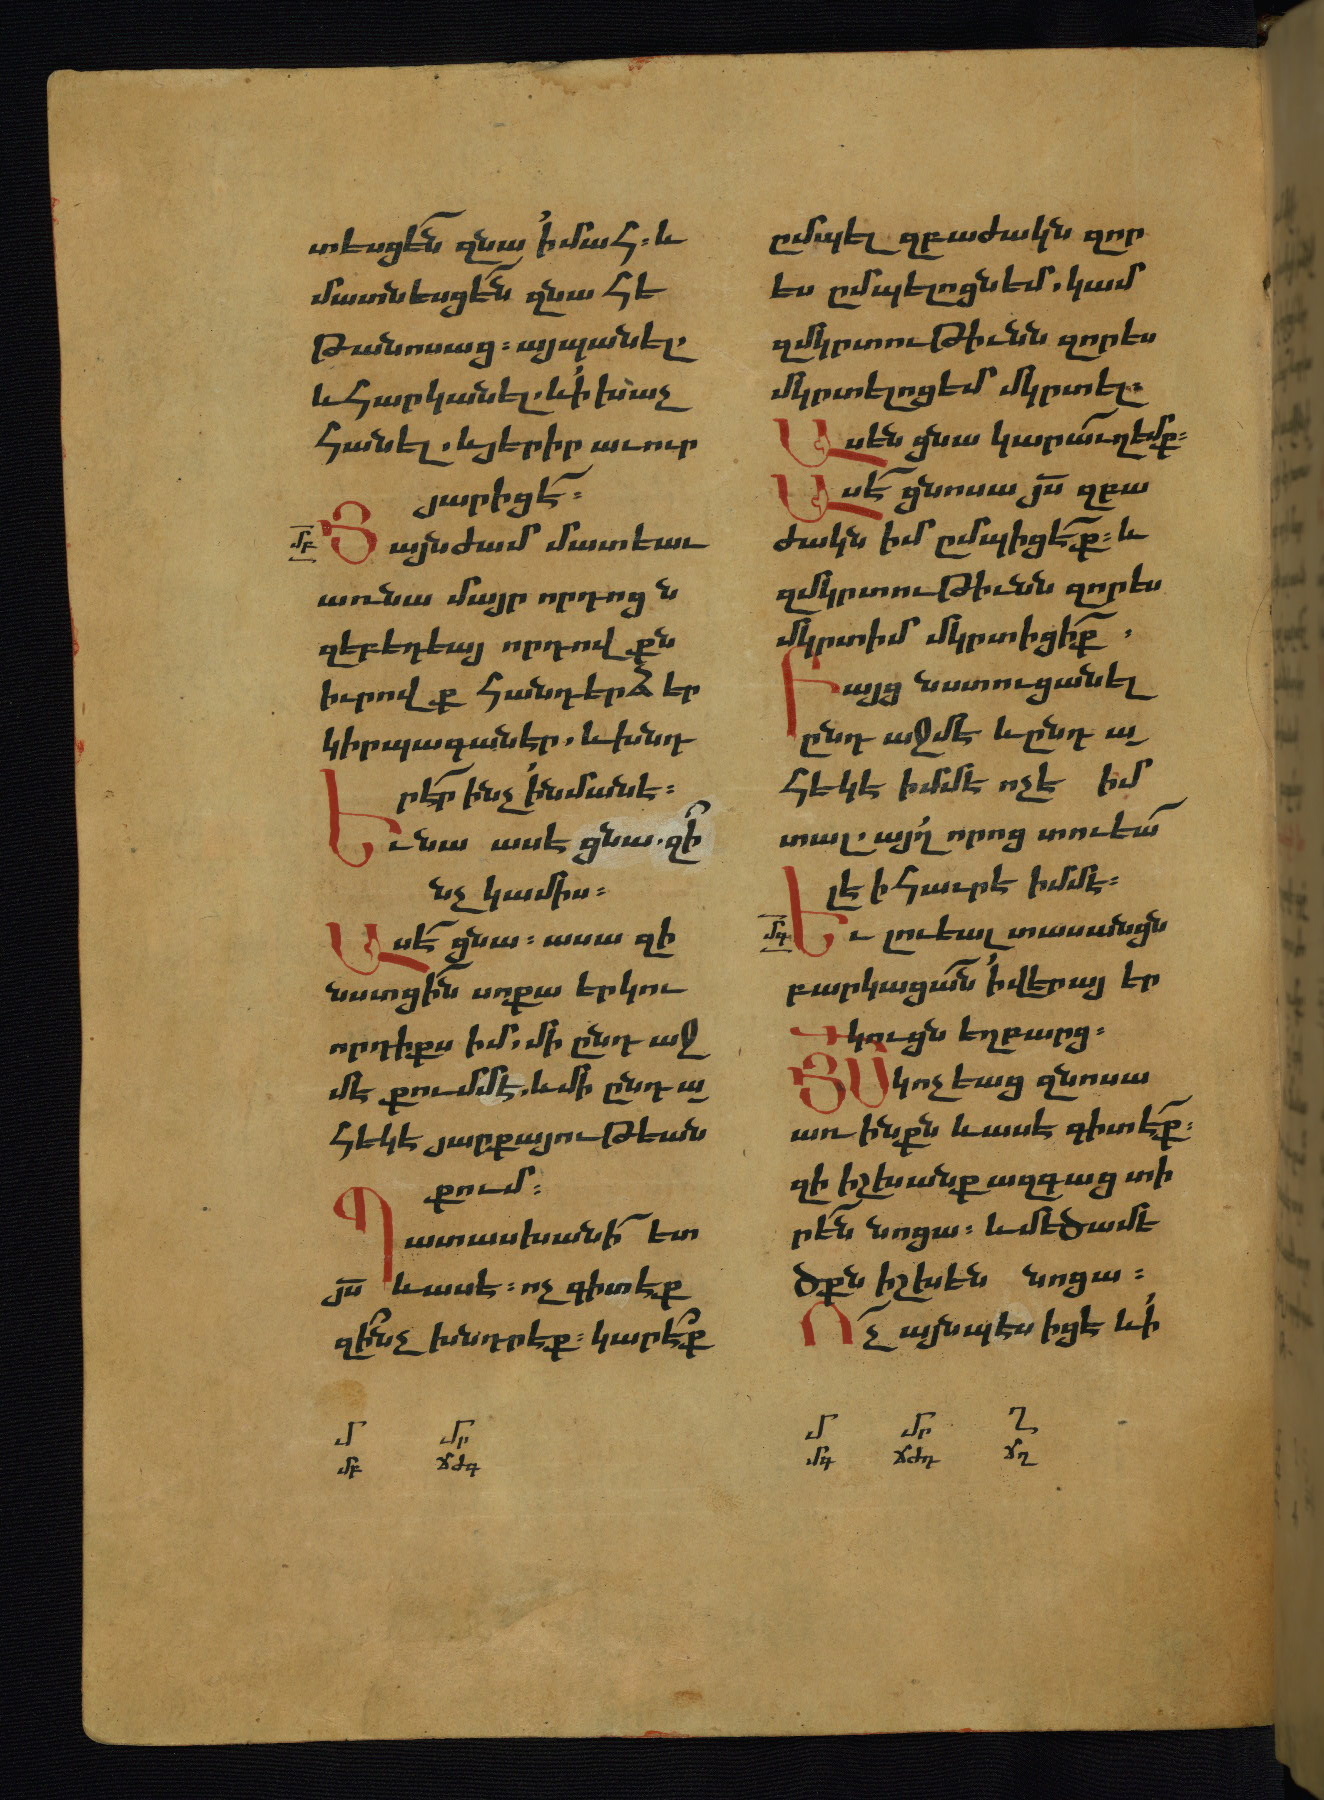 տեսցեն զնա ՛ի մահ։ և
մատնեսցեն զնա հե
թանոսաց։ այպանել.
և հարկանել. և ՛ի խաչ
հանել. և յերիր աւուր
յարիցէ։
մբ Յայնժամ մատեաւ
առ նա մայր որդոցն
զեբեդեայ որդովքն
իւրովք հանդերձ եր
կիրպագաներ. և խնդ
րէր ինչ ՛ի նմանէ։
Եւ նա ասէ ցնա. զի՞
նչ կամիս։
Ասէ ցնա։ ասա զի
նստցին սոքա երկու
որդիքս իմ. մի ընդ աջ
մէ քումմէ. և մի ընդ ա
հեկէ յարքայութեան
քում։
Պատասխանի ետ
յս և ասէ։ ոչ գիտէք
զինչ խնդրէք։ կարէք
ըմպել զբաժակն զոր
ես ըմպելոցն եմ. կամ
զմկրտութիւնն զոր ես
մկրտելոց եմ մկրտել։
Ասեն ցնա կարաւղ եմք։
Ասէ ցնոսա յս զբա
ժակն իմ ըմպիցէք։ և
զմկրտութիւնն զոր ես
մկրտիմ մկրտիցիք.
Բայց նստուցանել
ընդ աջմէ և ընդ ա
հեկէ իմմէ ոչ է իմ
տալ. այղ որոց տուեա
լ է ի հաւրէ իմմէ։
մգ Եւ լուեալ տասանցն
բարկացան ՛ի վերայ եր
կուցն եղբարց։
ՅՍ կոչեաց զնոսա
առ ինքն և ասէ գիտէք։
զի իշխանք ազգաց տի
րեն նոցա։ և մեծամե
ծքն իշխեն նոցա։
Ոչ այնպէս իցէ և ՛ի
մ մր
մբ ճժգ
մ մր ղ
մգ ճժդ ճղ